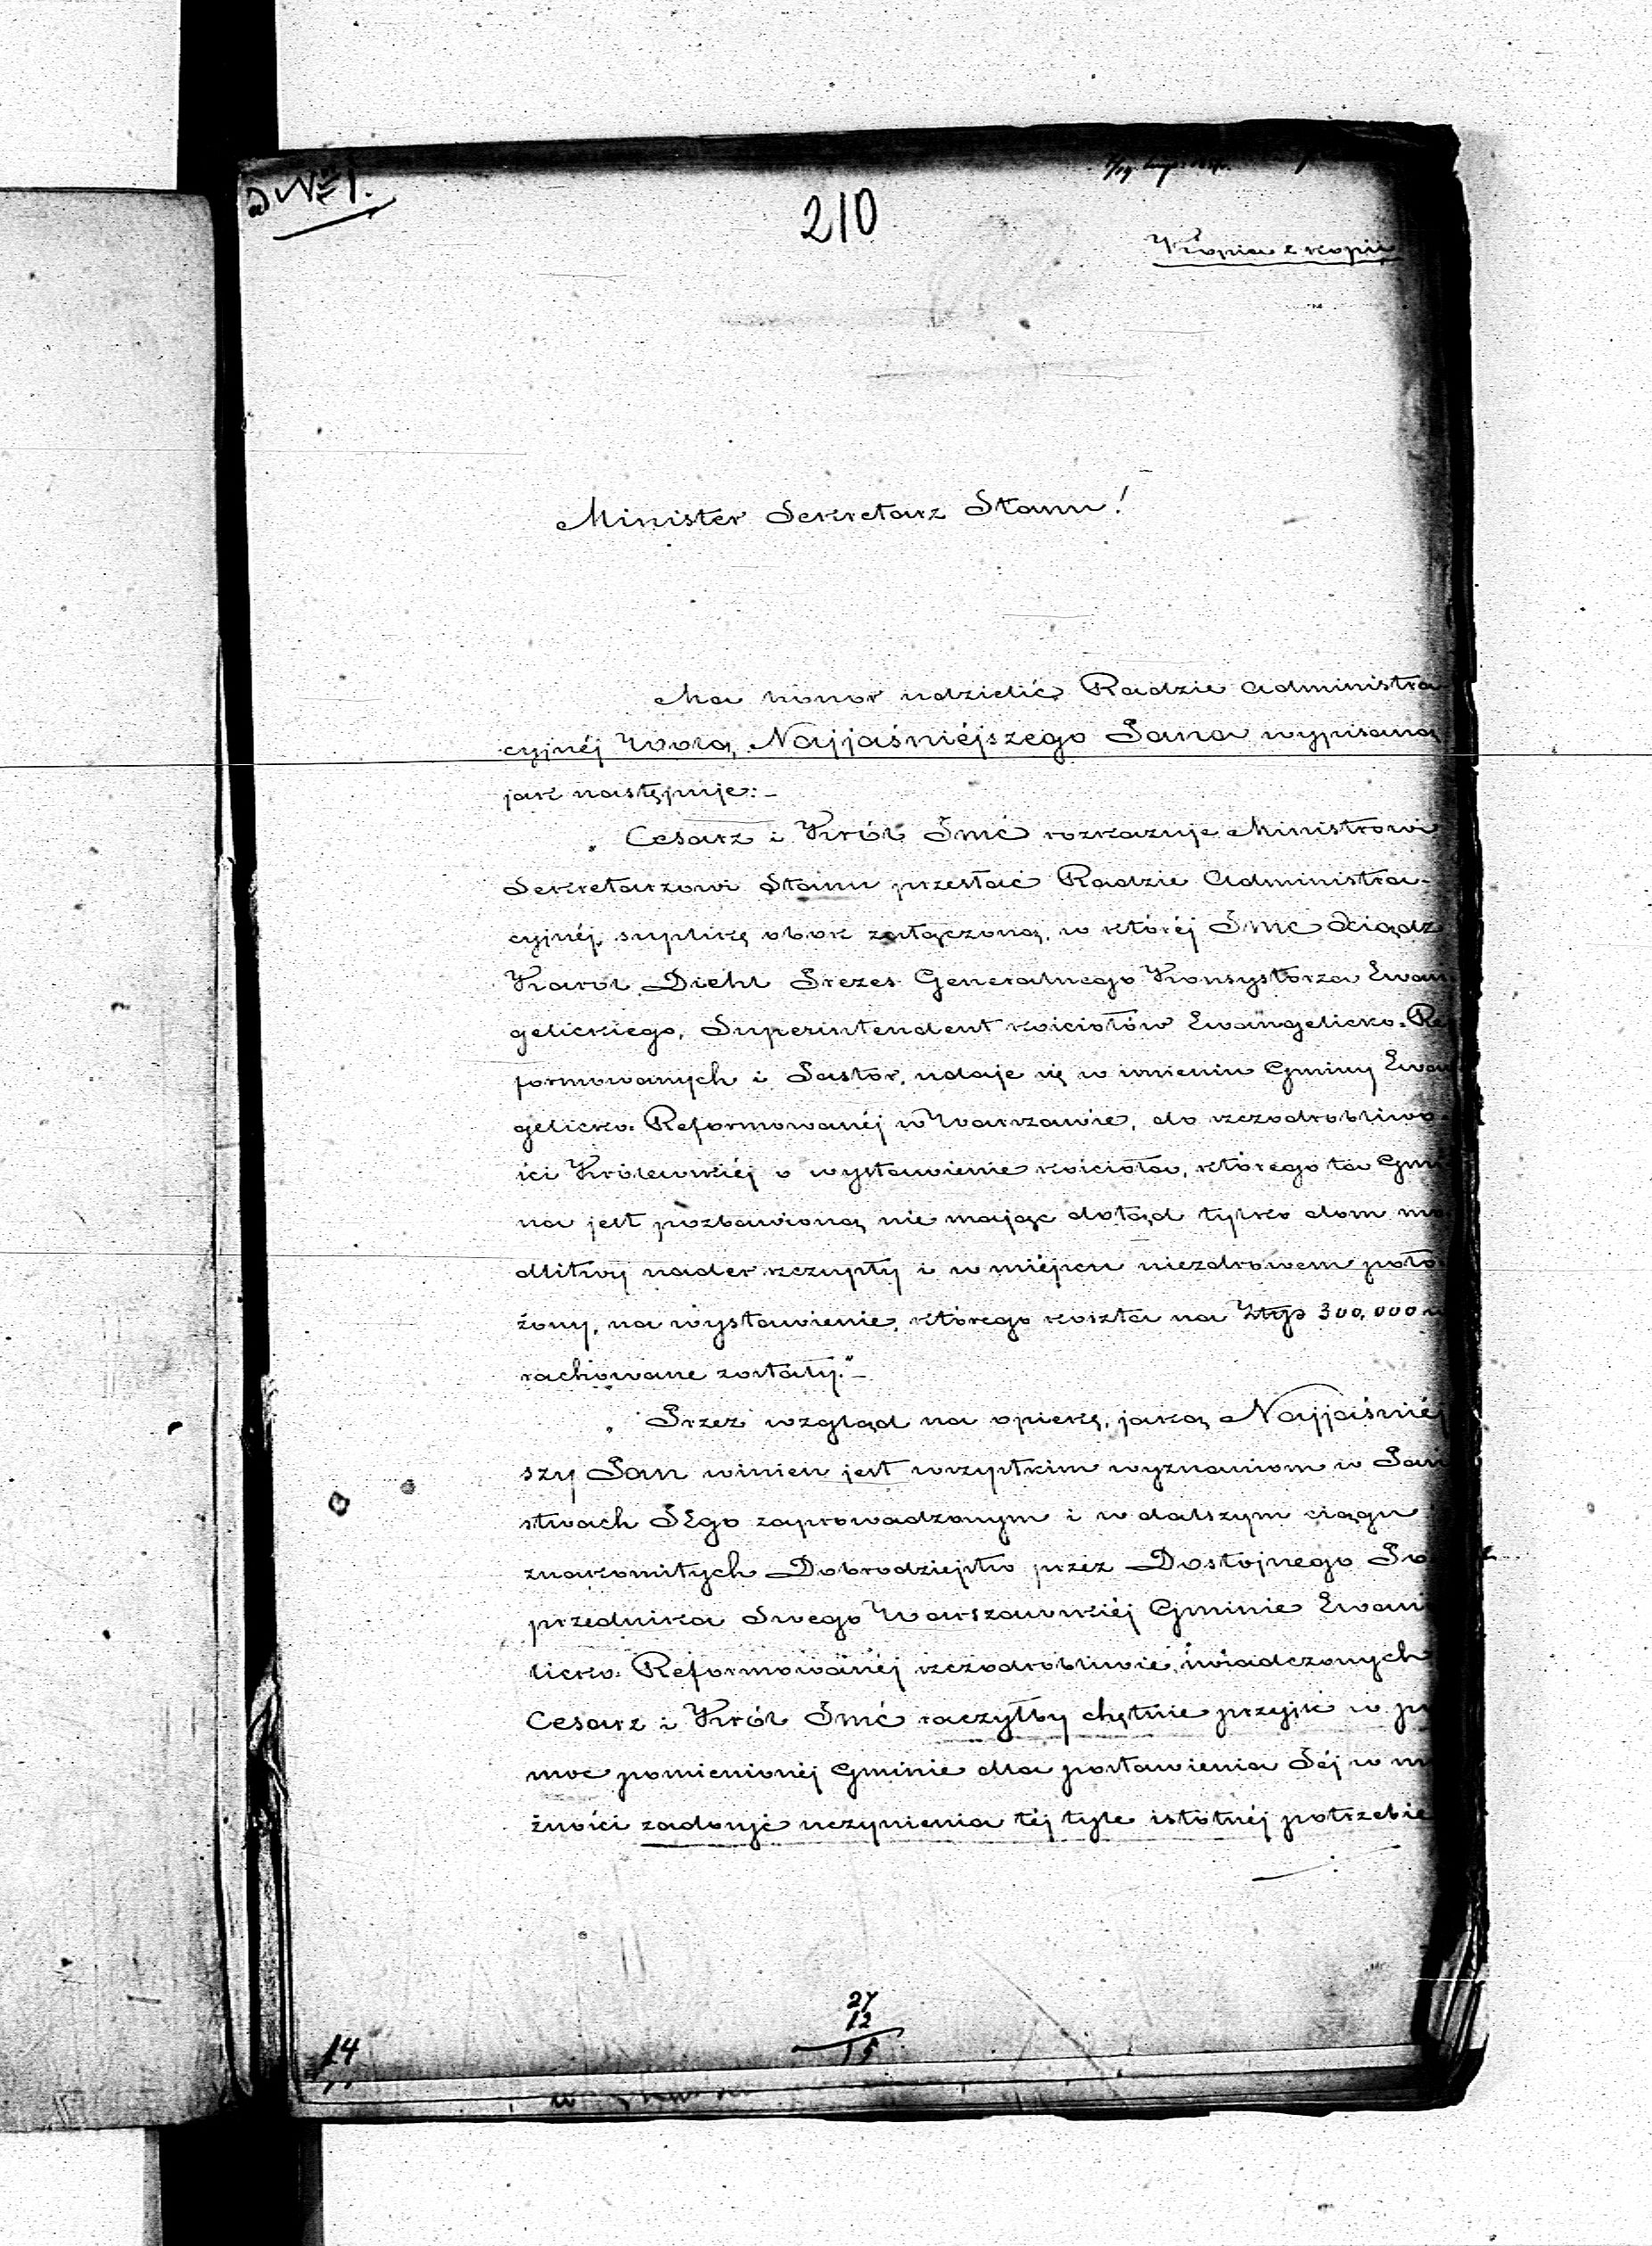 ad No 1.
210
Kopia z kopii
Minister Sekretarz Stanu!
Ma honor udzielić Radzie Administra-
cyjnéj Wolą Najjaśniéjszego Pana wypisaną
jak następuje:-
„Cesarz i Król Jmć rozkazuje Ministrowi
Sekretarzowi Stanu przesłać Radzie Administra-
cyjnéj, suplikę obok załączoną, w któréj Jmć Xiądz
Karol Diehl Prezes Generalnego Konsystorza Ewan
gelickiego, Superintendent kościołów Ewangelicko-Re
formowanych i Pastor, udaje się w imieniu Gminy Ewan
gelicko-Reformowanéj w Warszawie, do szczodrobliwo-
ści Królewskiéj o wystawienie kościoła, którego ta Gmi
na jest pozbawioną nie mając dotąd tylko dom mo
dlitwy nader szczupły i w miéjscu niezdrowem poło
żony, na wystawienie, którego koszta na Złtp 300,000 w
rachowane zostały."-
„Przez wzgląd na opiekę, jaką Najjaśniéj
szy Pan winien jest wszystkim wyznaniom w Pań
stwach JEgo zaprowadzonym i w dalszym ciągu
znakomitych Dobrodziejstw przez Dostojnego Po
przednika Swego Warszawskiéj Gminie Ewan
licko-Reformowanéj szczodrobliwie świadczonych
Cesarz i Król Jmć raczyłby chętnie przyjść w po
moc pomienionéj Gminie dla postawienia Jéj w mo
żności zadosyć uczynienia téj tyle istotnéj potrzebie
27
12
15
14